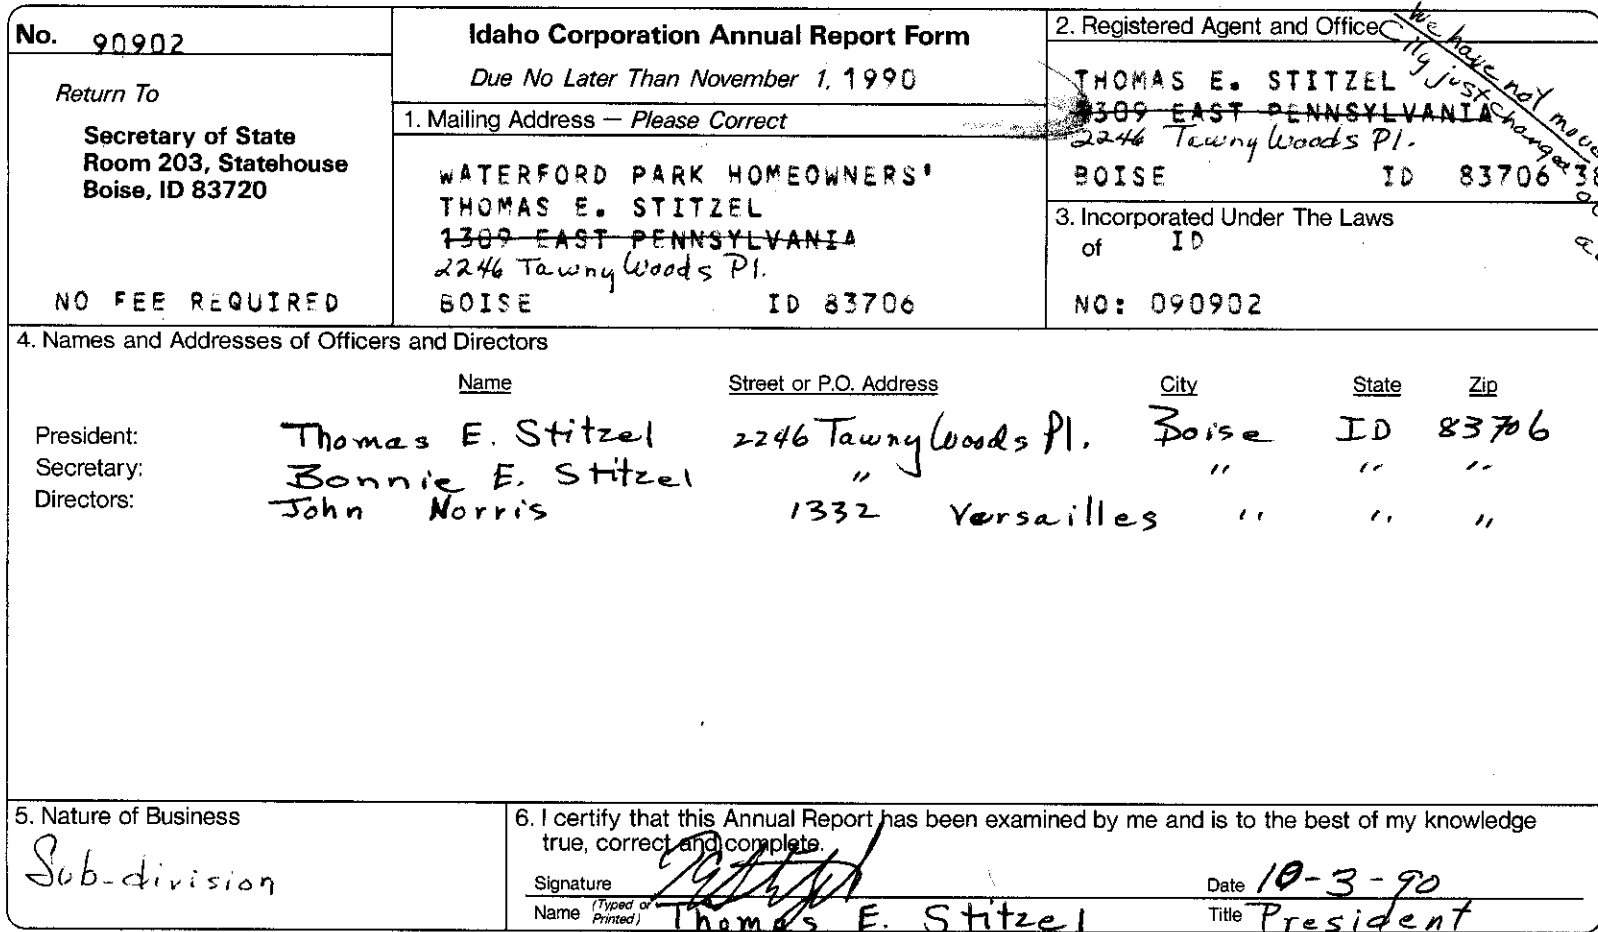 No. 90902
Return To
Secretary of State
Room 203, Statehouse
Boise, ID 83720
NO FEE REQUIRED
Idaho Corporation Annual Report Form
Due No Later Than November 1, 1990
1. Mailing Address — Please Correct
WATERFORD PARK HOMEOWNERS'
THOMAS E. STITZEL
1309 EAST PENNSYLVANIA
2246 Tawny Woods Pl.
BOISE ID 83706
2. Registered Agent and Office
THOMAS E. STITZEL
1309 EAST PENNSYLVANIA
2246 Tawny Woods Pl.
BOISE ID 83706
We have not moved
City just changed
3. Incorporated Under The Laws
of ID
NO: 090902
4. Names and Addresses of Officers and Directors
Name Street or P.O. Address City State Zip
President: Thomas E. Stitzel 2246 Tawny Woods Pl. Boise ID 83706
Secretary: Bonnie E. Stitzel " " " "
Directors: John Norris 1332 Versailles " " "
5. Nature of Business
Sub-division
6. I certify that this Annual Report has been examined by me and is to the best of my knowledge
true, correct and complete.
Signature Date 10-3-90
Name (Typed or Printed) Thomas E. Stitzel Title President